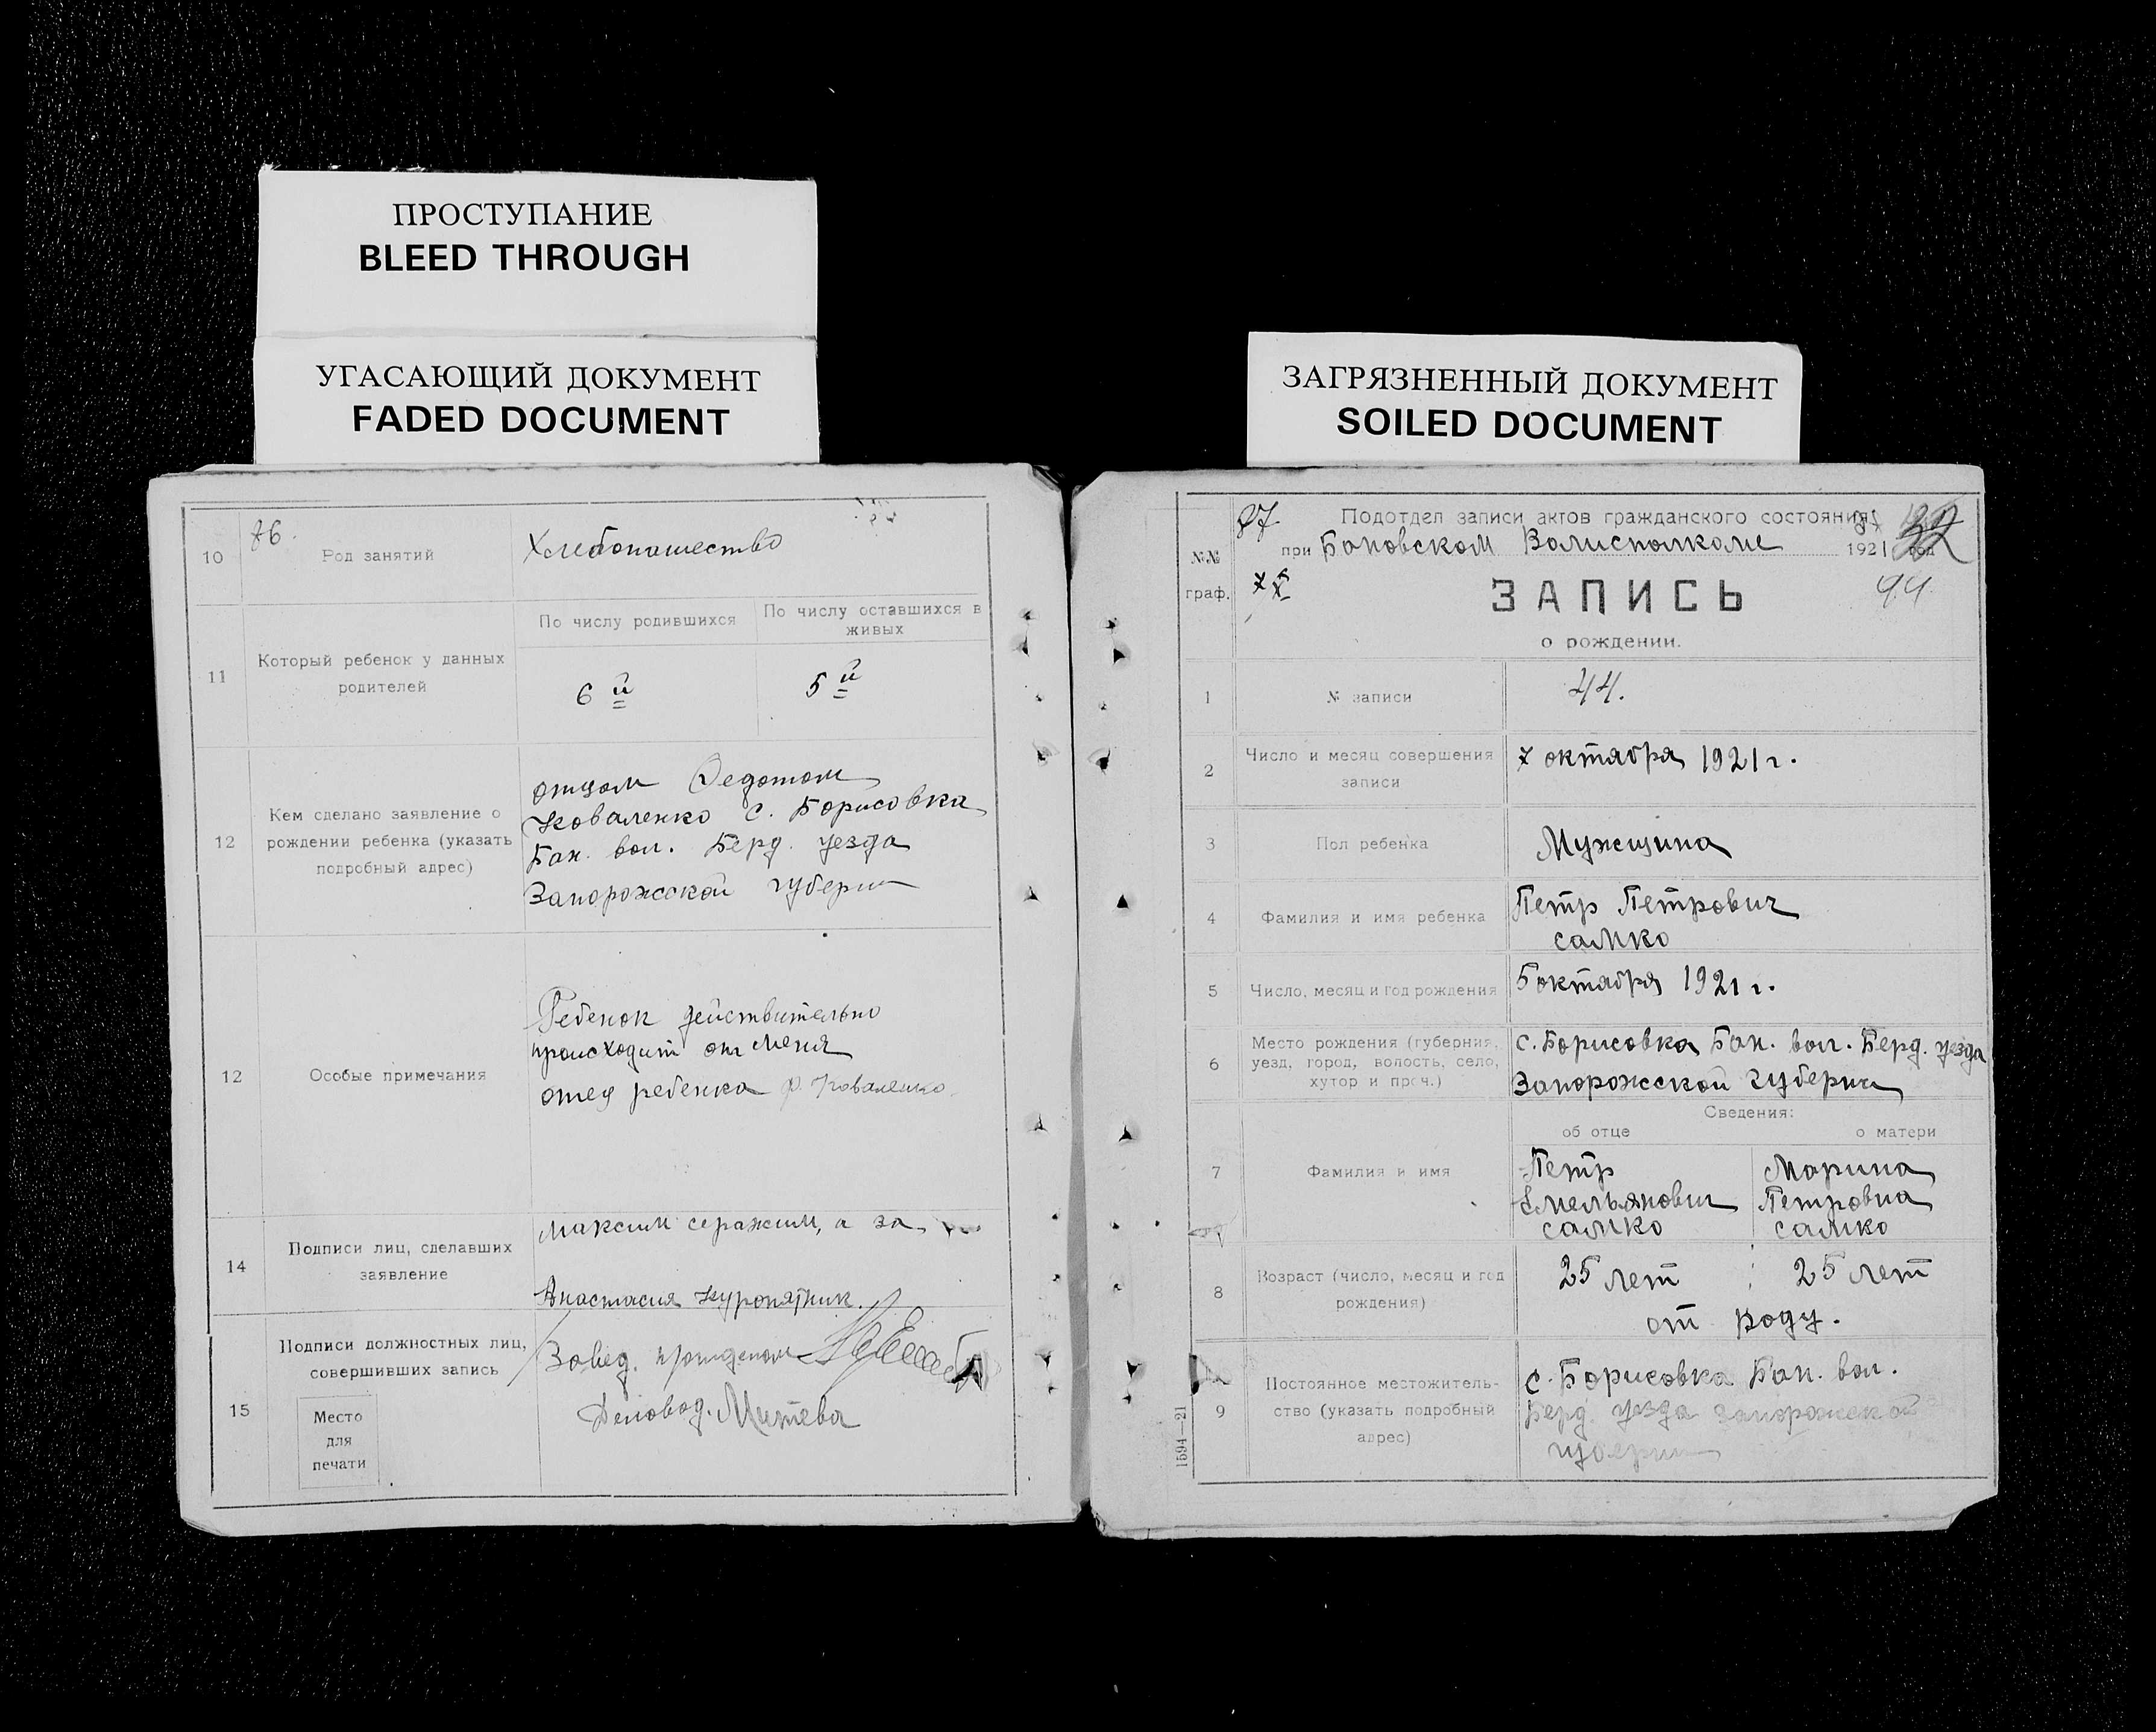 ПРОСТУПАНИЕ
BLEED THROUGH
УГАСАЮЩИЙ ДОКУМЕНТ
FADED DOCUMENT
10
76.
Род занятий
Хлебопашество
11
Который ребенок у данных
родителей
По числу родившихся
По числу оставшихся в
живых
6 й
5 й
12
Кем сделано заявление о
рождении ребенка (указать
подробный адрес)
отцом Федотом
Коваленко с. Борисовка
Бан. вол. Берд. уезда
Запорожской губерни
12
Особые примечания
Ребенок действительно
происходит от меня
отец ребенка Ф. Коваленко.
14
Подписи лиц, сделавших
заявление
Максим
а за
Анастасия Куропятник.
15
Подписи должностных лиц,
совершивших запись
Место
для
печати
Завед.
Деловод.
ЗАГРЯЗНЕННЫЙ ДОКУМЕНТ
SOILED DOCUMENT
№№
граф.
Подотдел записи актов гражданского состояния
при Бановском Волисполкоме 1921 год
ЗАПИСЬ
44
о рождении.
1
№ записи
44.
2
Число и месяц совершения
записи
7 октября 1921 г.
3
Пол ребенка
Мужщина
4
Фамилия и имя ребенка
Петр Петрович
самко
5
Число, месяц и год рождения
5 октября 1921 г.
6
Место рождения (губерния,
уезд, город, волость, село,
хутор и проч.)
с. Борисовка Бан. вол. Берд. уезда
Запорожской губерни
Сведения:
об отце
о матери
7
Фамилия и имя
Петр
Емельянович
самко
Марина
Петровна
самко
8
Возраст (число, месяц и год
рождения)
25 лет
25 лет
от роду.
9
Постоянное местожитель-
ство (указать подробный
адрес)
с. Борисовка Бан. вол.
Берд. уезда Запорожской
губерни
1594—21